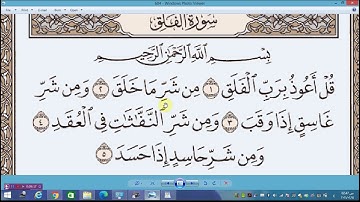 604 - Windows Photo Viewer
سُورَةُ الْفَلَقِ
بِسْمِ اللَّهِ الرَّحْمَٰنِ الرَّحِيمِ
قُلْ أَعُوذُ بِرَبِّ الْفَلَقِ ١ مِن شَرِّ مَا خَلَقَ ٢ وَمِن شَرِّ
غَاسِقٍ إِذَا وَقَبَ ٣ وَمِن شَرِّ النَّفَّاثَاتِ فِي الْعُقَدِ ٤
وَمِن شَرِّ حَاسِدٍ إِذَا حَسَدَ ٥